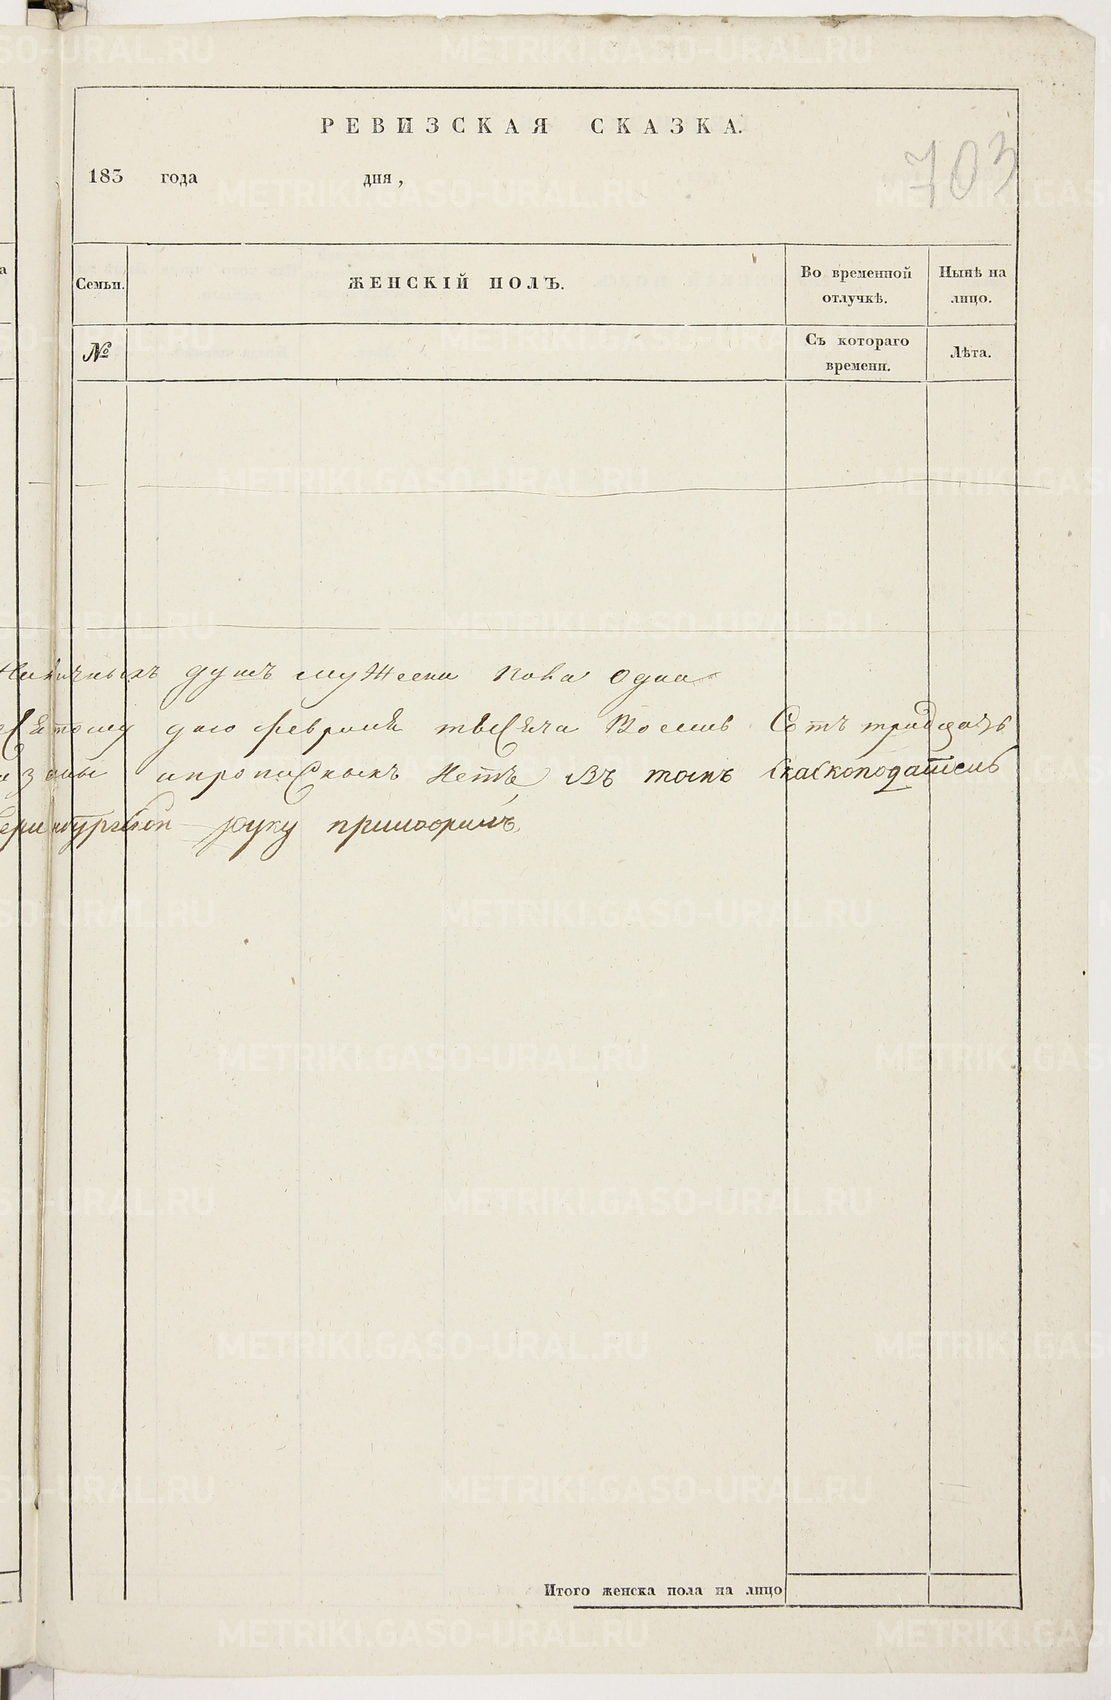 РЕВИЗСКАЯ СКАЗКА.
703
183 года дня,
Семьи. ЖЕНСКІЙ ПОЛЪ. Во временной отлучкѣ. Нынѣ на лицо.
№ Съ котораго времени. Лѣта.
наличныхъ душъ мужеска пола одна
дню февраля тысяча восемь сотъ тридцать
ипрописныхъ нетъ въ томъ скаскоподатель
руку приложилъ
Итого женска пола на лицо
METRIKI.GASO-URAL.RU